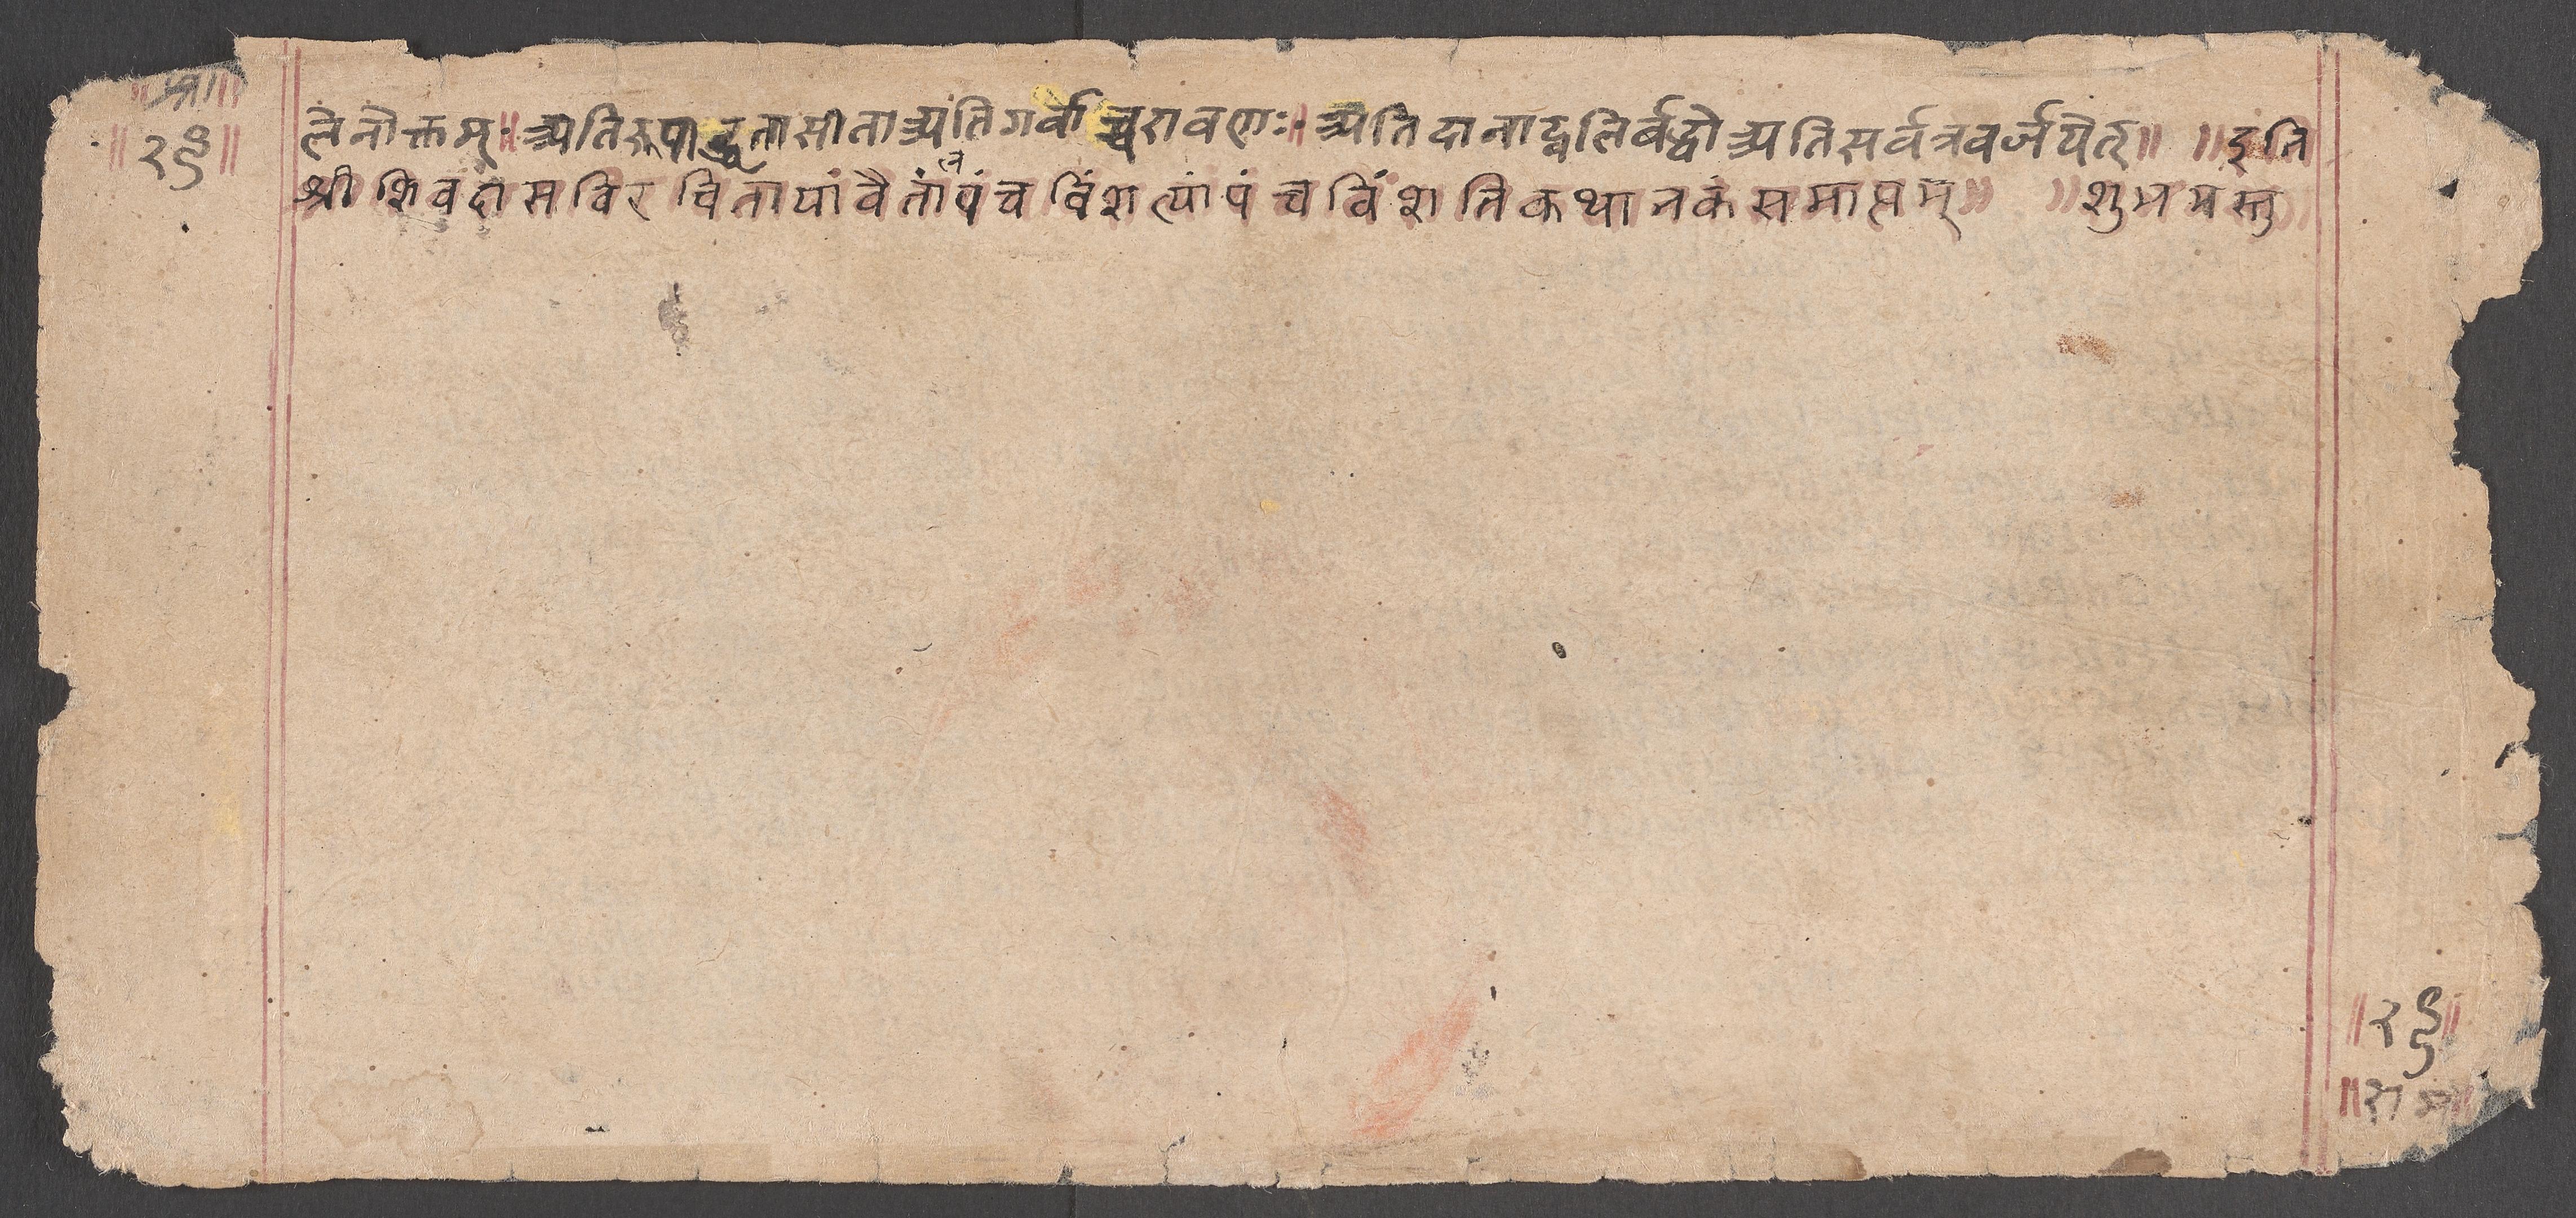 श्री
॥२९॥
लेनोक्तम्॥ अतिरूपाद्धृतासीताअतिगर्वाच्चरावणः॥ अतिदानाद्बलिर्बद्धोअतिसर्वत्रवर्जयेत्॥ ॥इति
श्रीशिवदासविरचितायांवैतांलपंचविंशत्यांपंचविंशतिकथानकंसमाप्तम्॥ ॥शुभमस्तु
॥२९॥
॥राम॥